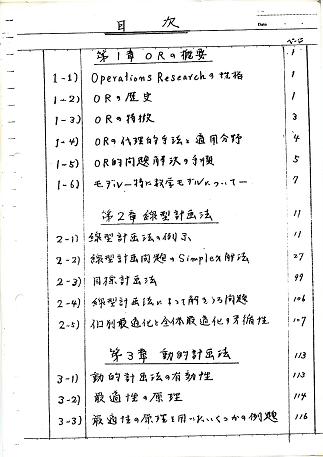 目次
Date
ページ
第1章 ORの概要 1
1-1) Operations Researchの性格 1
1-2) ORの歴史 1
1-3) ORの特徴 3
1-4) ORの代理的手法と適用分野 4
1-5) OR的問題解決の手順 5
1-6) モデル—特に数学モデルについて— 7
第2章 線型計画法 11
2-1) 線型計画法の例示 11
2-2) 線型計画問題のSimplex解法 27
2-3) 目標計画法 99
2-4) 線型計画法によって解きうる問題 106
2-5) 個別最適化と全体最適化の矛盾性 107
第3章 動的計画法 113
3-1) 動的計画法の有効性 113
3-2) 最適性の原理 114
3-3) 最適性の原理を用いたいくつかの例題 116